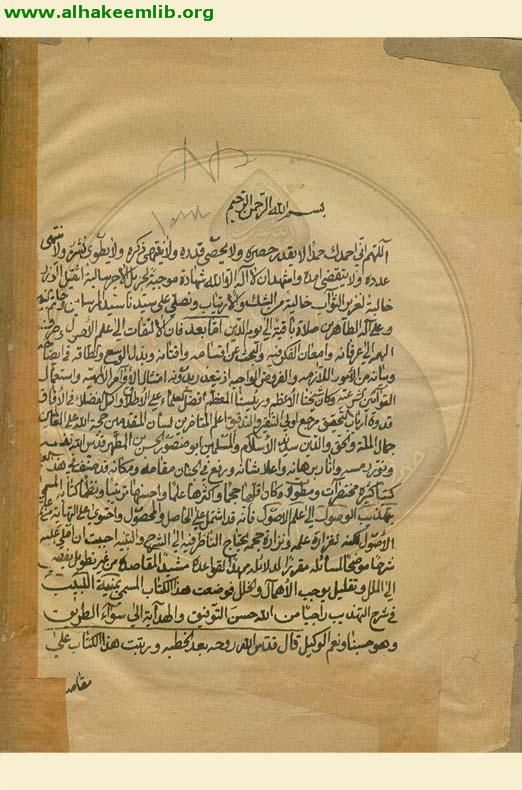 www.alhakeemlib.org
بسم الله الرحمن الرحيم
اللهم اني احمدك حمدا لا يقدر حصره ولا يحصى قدره ولا ينقضي ذكره ولا يطوى نشره ولا ينتهي
عدده ولا ينقضي امده واشهد ان لا اله الا الله شهادة موجبة لاجر
خالية الشك والارتياب ونصلي على سيدنا سيد المرسلين
وعلى آله الطاهرين صلاة باقية الى يوم الدين اما بعد فان الالتفات الى علم الاصول
الى عرفانه وامعان الفكر فيه والبحث عن اقسامه وافنانه وبذل الوسع والطاقة في ايضاحه
وبيانه من الامور اللازمة والفروض الواجبة امتثال الاوامر الالهية واستعمال
شيخنا الاعظم ورئيسنا المعظم افضل العلماء على الاطلاق واكمل الفضلاء في الآفاق
قدوة ارباب التحقيق مرجع اولي التنقير والتدقيق لسان المتقدمين حجة الله على العالمين
جمال الملة والحق والدين الاسلام والمسلمين ابو منصور الحسن بن المطهر قدس الله نفسه
ونور رمسه وانار برهانه واعلا شانه ورفع في الجنان مقامه ومكانه قد صنف في هذا
كتبا كثيرة مختصرات ومطولة وكان اقلها حجما واكثرها علما واحسنها ترتيبا ونظما كتابه المسمى
بتهذيب الوصول الى علم الاصول فانه قد اشتمل على الحاصل والمحصول واحتوى على النهاية
الاصول لكنه لغزارة علمه ونزارة حجمه يحتاج الناظر فيه الى الشرح والتنبيه احببت ان املي عليه
شرحا موضحا لمسائله مقررا لدلائله ممهدا لقواعده مشيدا لمقاصده من غير تطويل يفضي
الى الملل وتقليل يوجب الاهمال والخلل فوضعت هذا الكتاب المسمى بمنية اللبيب
في شرح التهذيب راجيا من الله حسن التوفيق والهداية الى سواء الطريق
وهو حسبنا ونعم الوكيل قال قدس الله روحه بعد الخطبة ورتبت هذا الكتاب على
مقاصد